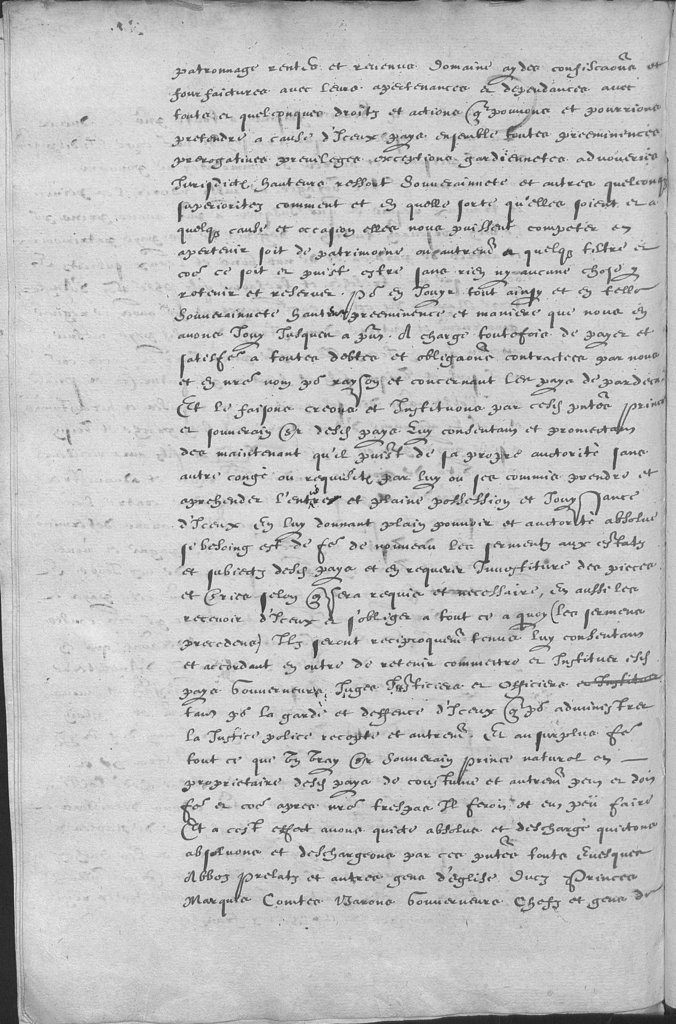 patronnage rentes et revenus domaine aydes confiscaões et
fourfaictures avec leurs apertenances et dependances avec
touts et quelconques droits et actions q pouvons et pourrions
pretendre a cause d'Iceux pays ensemble toutes preeminences
prerogatives previleges exceptions gardiennetes advoueries
Jurisdictõ hauteurs ressort souverainnete et autres quelconqz
superioritez comment et en quelle sorte qu'elles soient et a
quelqz cause et occasion elles nous puissent competer en
apertenir soit de patrimoine ou autremt a quelqz tiltre et
coe ce soit et puist estre sans rien ny aucune chose y
retenir et reserver. Pr en Jouyr tout ainsy et en telle
souverainnete hauteur preeminence et maniere que nous en
avons Jouy Jusques a pnt. A charge toutefois de payer et
satisfe a toutes debtes et obligaõns contractees par nous
et en nre nom pr rayson et concernant les pays de pardeca
Et le faisons creons et Instituons par cesd pntes Prince
et souverain Sr desd pays Luy consentans et promectans
des maintenant qu'il puist de sa propre auctorité sans
autre congé ou requisitõ par luy ou ses commis prendre et
aprehender l'entiere et plaine possession et Jouyssance
d'Iceux En luy donnant plain pouvoir et auctorité absolue
se besoing est de fe de nouveau les serments aux estatz
et subiectz desd pays et en requerir Investiture des pieces
et Sries selon q sera requis et necessaire, En aussi les
recevoir d'Iceux et s'obliger a tout ce a quoy (les sermens
precedens) Ilz seront reciproquemt tenus Luy consentans
et accordant en outre de retenir commettre et Instituer esd
pays Gouverneurs, Juges Justiciers et Officiers et Instituer
tant pr la garde et deffence d'Iceux q pr administrer
la Justice police recepte et autremt. Et au surplus fe
tout ce que Un Vray Sr Souverain Prince naturel en
proprietaire desd pays de coustume et autremt peu et doit
fe et coe apres nre trespas Il feroit et eus peü faire
Et a cest effect avons quicte absolus et descharge quictons
absolvons et deschargeons par ces pntes touts Evesques
Abbez Prelatz et autres gens d'Eglise Ducz Princes
Marquis Comtes Barons Gouverneurs Chefz et gens de